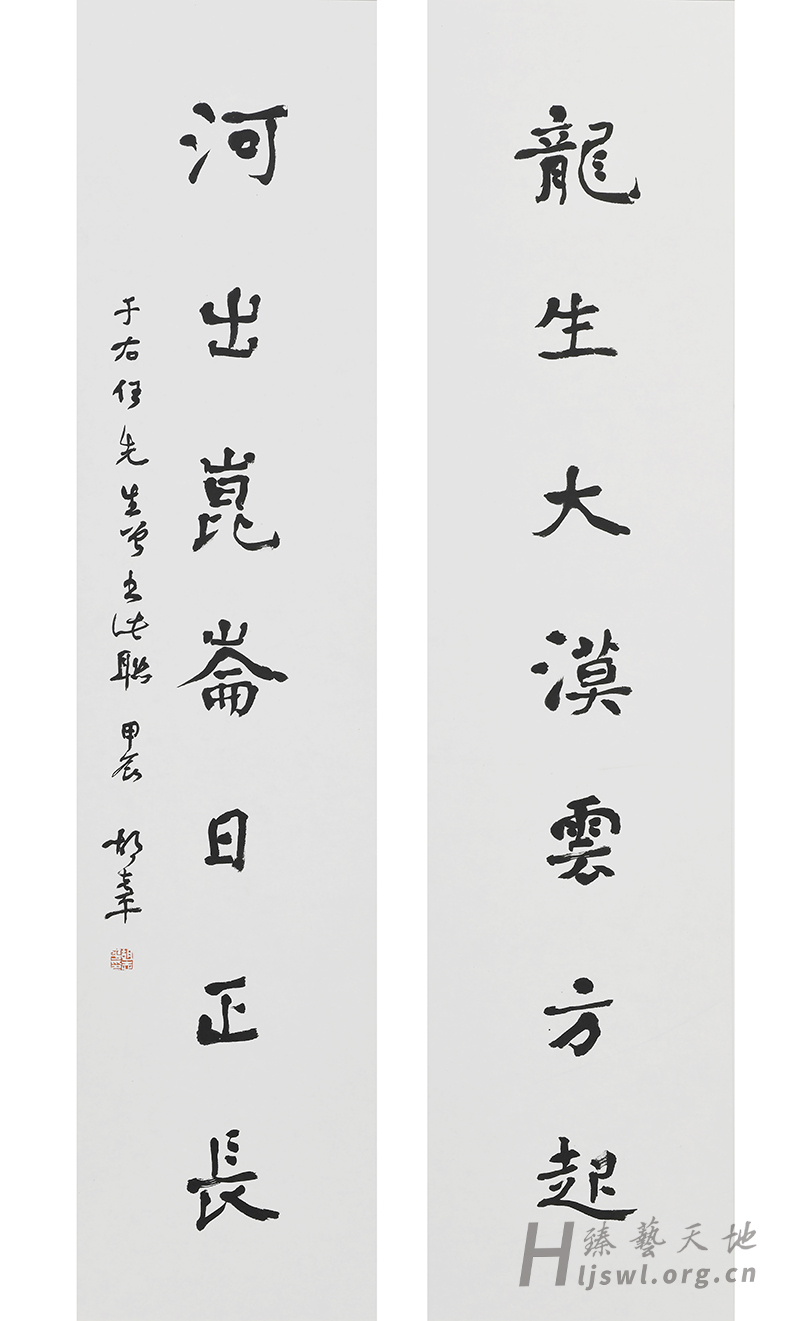 龍生大漠雲方起
河出崑崙日正長
于右任先生曾書此聯 甲辰
臻藝天地
Hljswl.org.cn